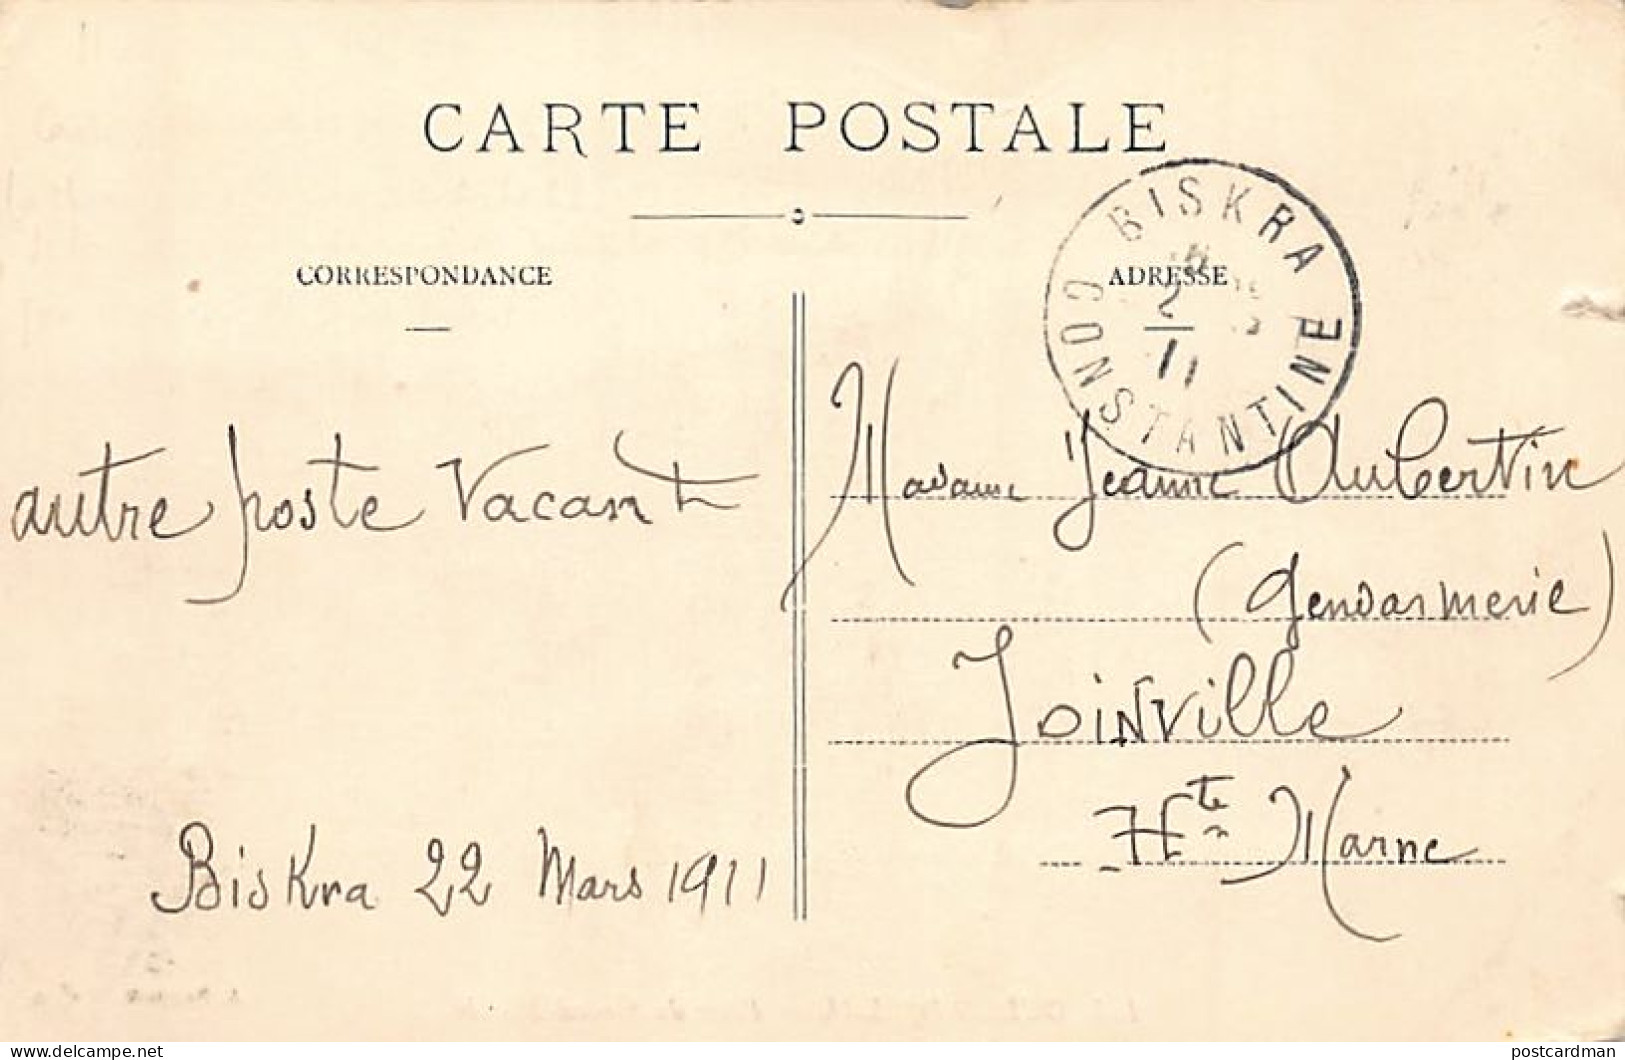 CARTE POSTALE
CORRESPONDANCE
ADRESSE
BISKRA
CONSTANTINE
11
autre poste vacant
Biskra 22 Mars 1911
Madame Jeanne Aubertin
(Gendarmerie)
Joinville
Hte Marne
delcampe.net
postcardman